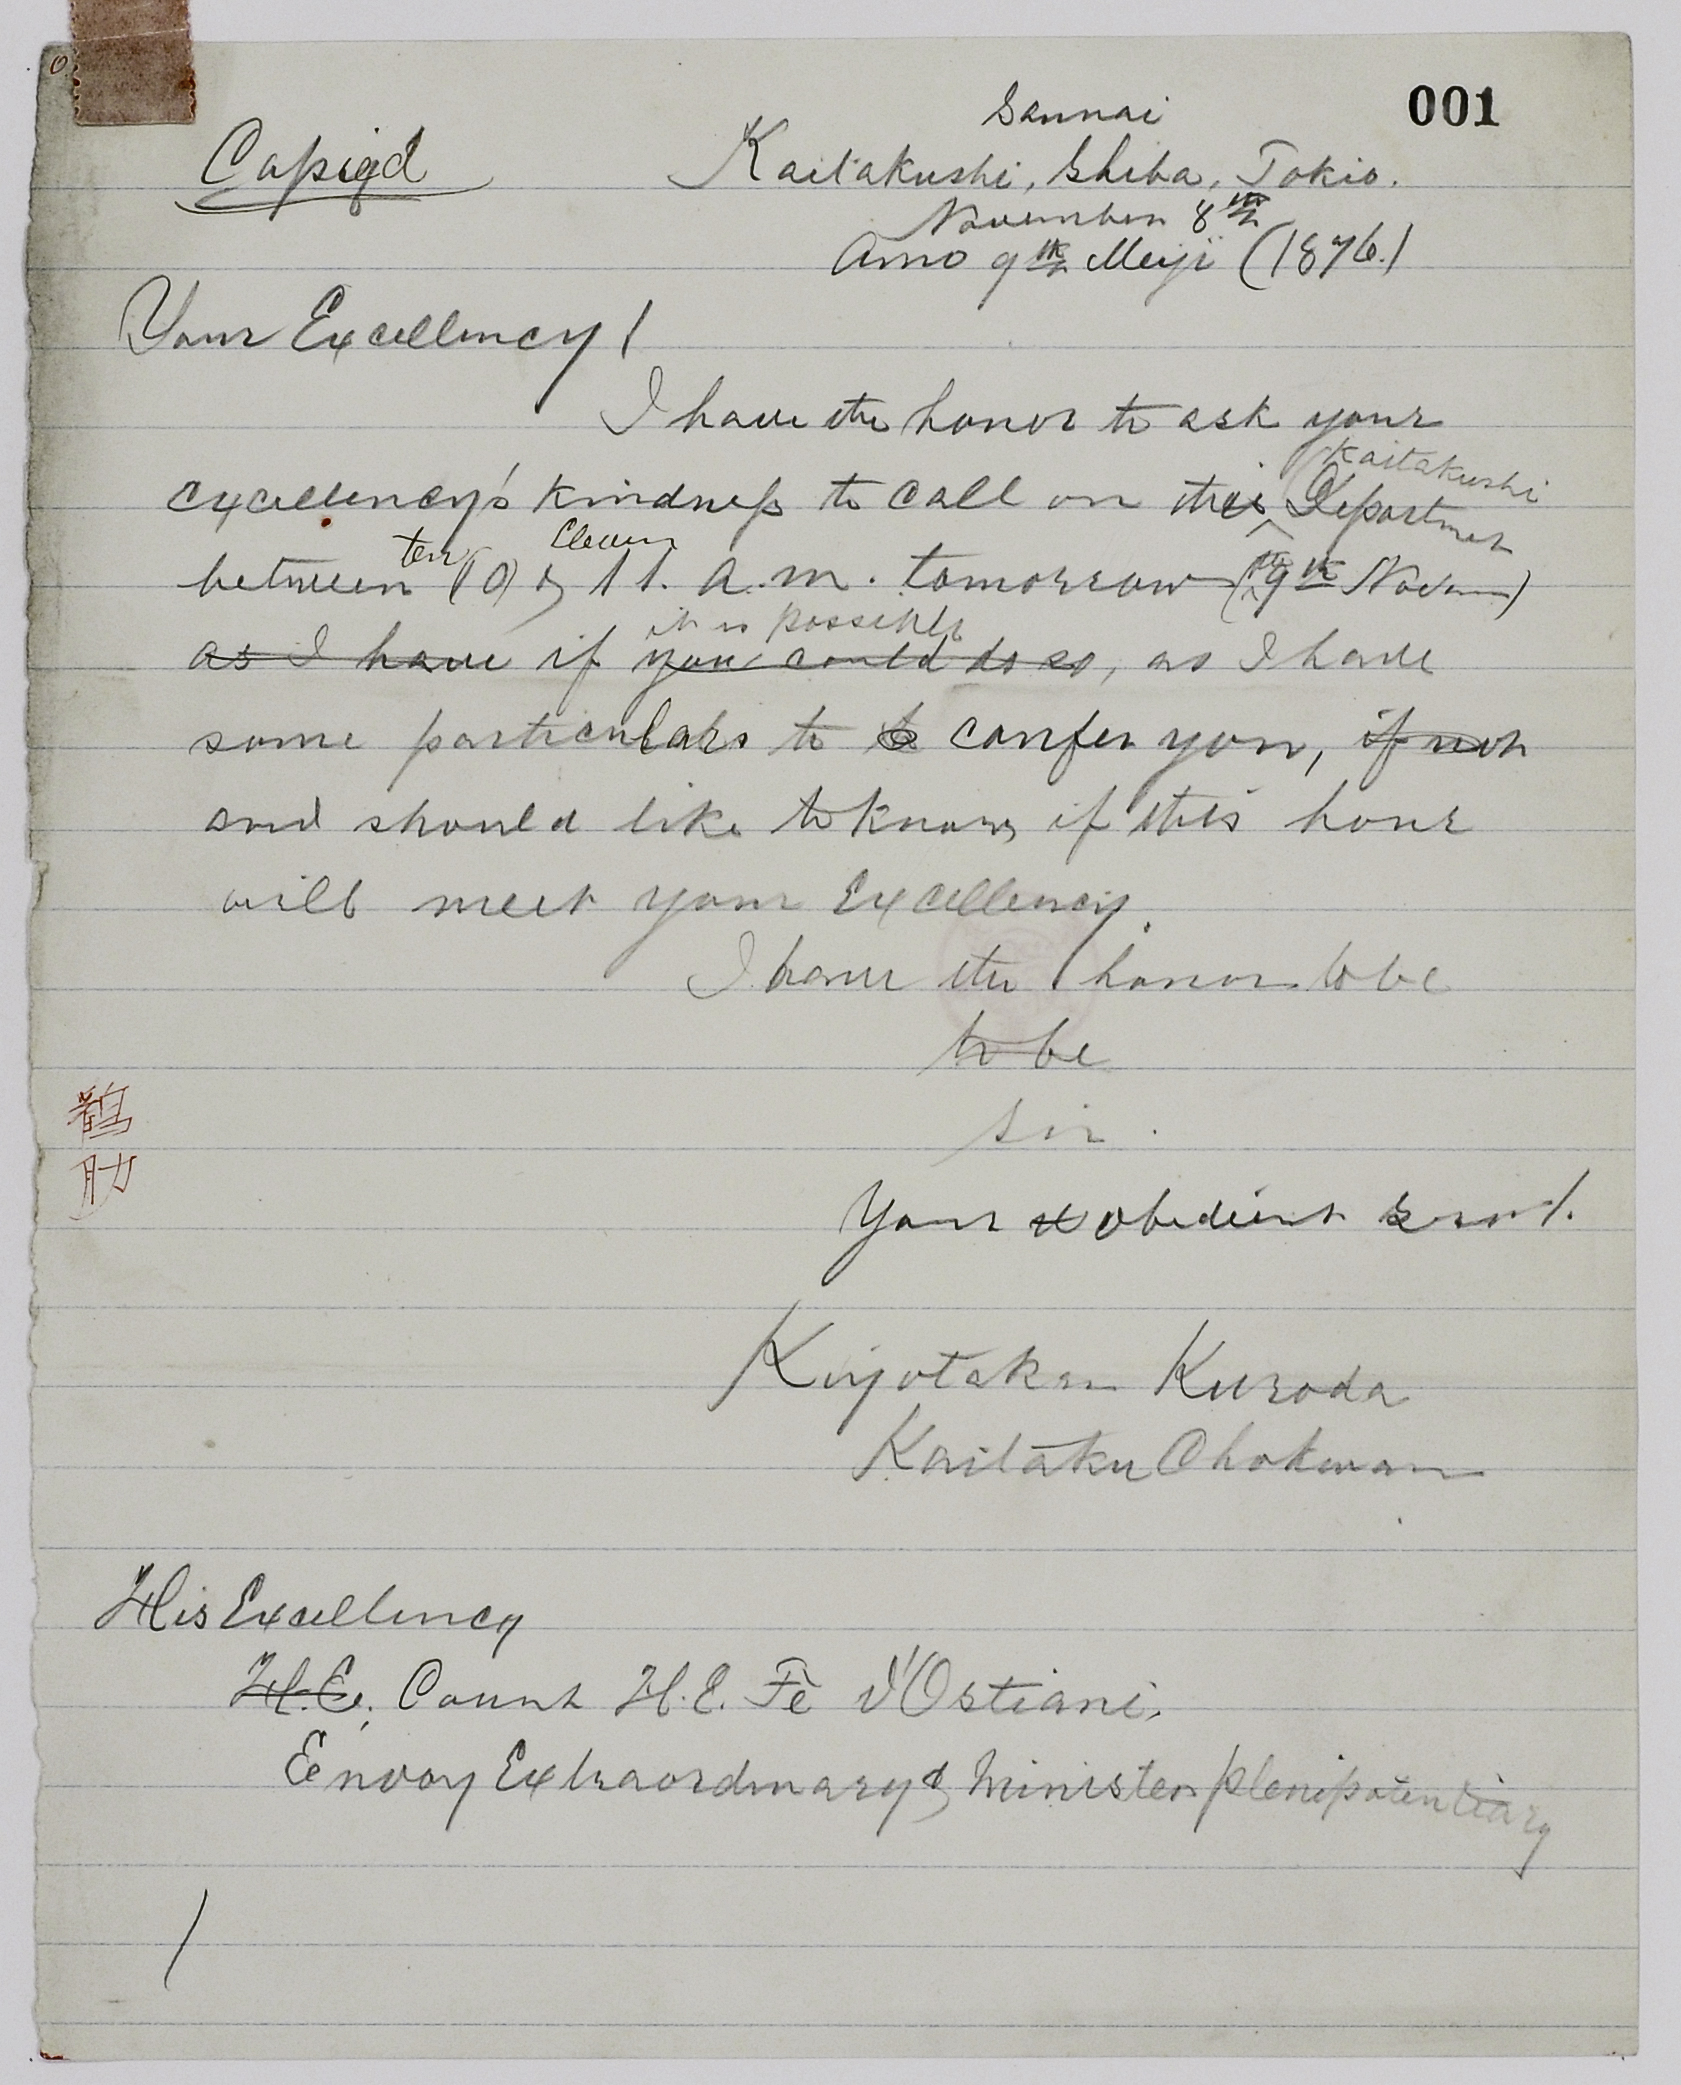 001
Sannai
Copied Kaitakushi, Shiba, Tokio.
November 8th
Anno 9th Meiji (1876.)
Your Excellency!
I have the honor to ask your
Kaitakushi
excellency's kindness to call on this Department
ten Eleven
between (10) & 11. a.m. tomorrow (9th Novem)
it is possible
as I have if you could do so, as I have
some particulars to confer you, if not
and should like to know, if this hour
will meet your Excellency.
I have the honor to be
to be
Sir.
Your obedient Servt.
Kiyotaka Kuroda
Kaitaku Chokwan
鶴
肋
His Excellency
H.E. Count H.E. Fè d'Ostiani.
Envoy Extraordinary & Minister Plenipotentiary